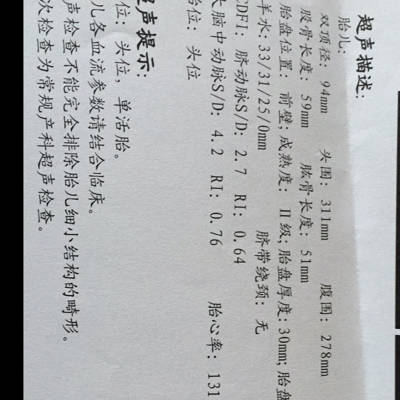 超声描述:
胎儿:
双顶径: 94mm 头围: 311mm 腹围: 278mm
股骨长度: 59mm 肱骨长度: 51mm
胎盘位置: 前壁; 成熟度: II级; 胎盘厚度: 30mm; 胎盘
羊水: 33/31/25/0mm 脐带绕颈: 无
CDFI: 脐动脉S/D: 2.7 RI: 0.64
大脑中动脉S/D: 4.2 RI: 0.76 胎心率: 131
胎位: 头位
超声提示:
位: 头位, 单活胎。
儿各血流参数请结合临床。
声检查不能完全排除胎儿细小结构的畸形。
次检查为常规产科超声检查。